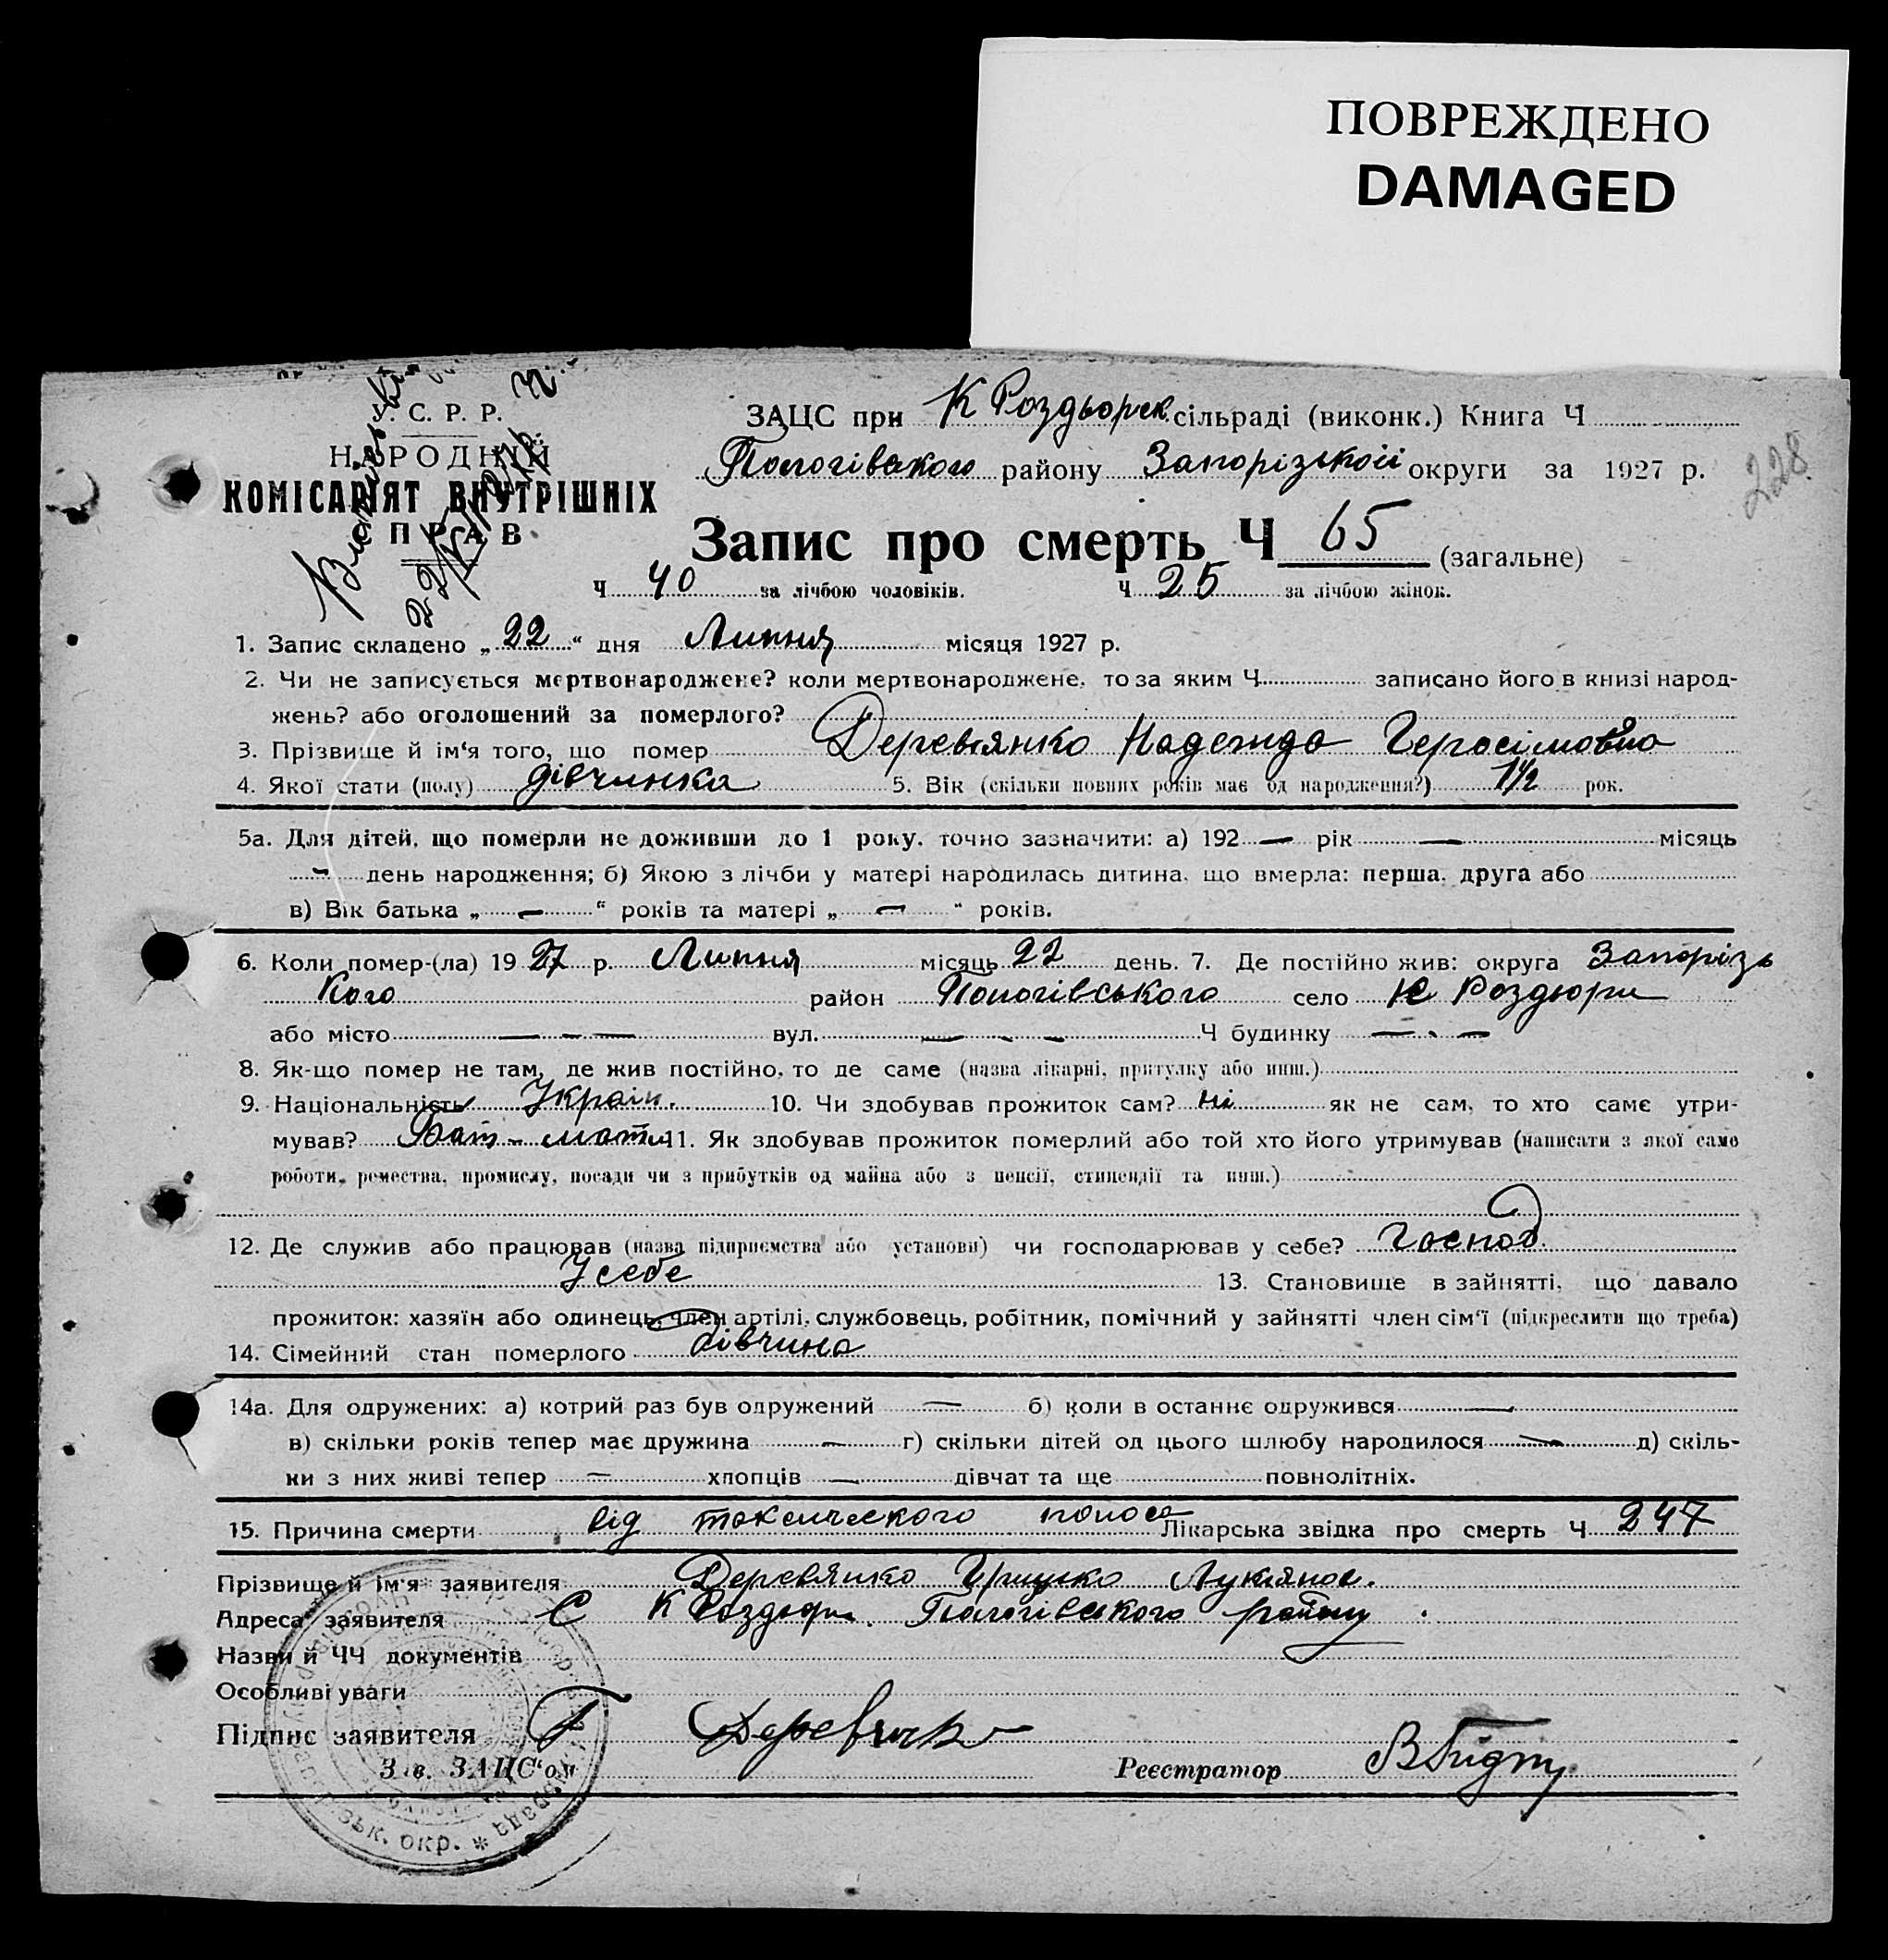 ПОВРЕЖДЕНО
DAMAGED
У. С. Р. Р.
НАРОДНІЙ
КОМІСАРІЯТ ВНУТРІШНІХ
ПРАВ
228
ЗАЦС при К Роздьорск. сільраді (виконк.) Книга Ч
Пологівського району Запорізької округи за 1927 р.
Запис про смерть Ч 65 (загальне)
Ч 40 за лічбою чоловіків. Ч 25 за лічбою жінок.
1. Запис складено „22“ дня Липня місяця 1927 р.
2. Чи не записується мертвонароджене? коли мертвонароджене, то за яким Ч записано його в книзі народ-
жень? або оголошений за померлого?
3. Прізвище й ім‘я того, що помер Деревянко Надежда Герасімовна
4. Якої стати (полу) дівчинка 5. Вік (скільки повних років має од народження?) 1½ рок.
5а. Для дітей, що померли не доживши до 1 року, точно зазначити: а) 192 — рік — місяць
- день народження; б) Якою з лічби у матері народилась дитина, що вмерла: перша, друга або
в) Вік батька „ — “ років та матері „ — “ років.
6. Коли помер-(ла) 1927 р. Липня місяць 22 день. 7. Де постійно жив: округа Запорізь
кого район Пологівського село К Роздюри
або місто — - — вул. — - - Ч будинку — . —
8. Як-що помер не там, де жив постійно, то де саме (назва лікарні, притулку або инш.)
9. Національність Украін. 10. Чи здобував прожиток сам? ні як не сам, то хто саме утри-
мував? Бат - мати 11. Як здобував прожиток померлий або той хто його утримував (написати з якої саме
роботи, ремества, промислу, посади чи з прибутків од майна або з пенсії, стипендії та инш.)
12. Де служив або працював (назва підприємства або установи) чи господарював у себе? Господ.
У себе 13. Становище в зайнятті, що давало
прожиток: хазяїн або одинець, член артілі, службовець, робітник, помічний у зайнятті член сім‘ї (підкреслити що треба)
14. Сімейний стан померлого дівчина
14а. Для одружених: а) котрий раз був одружений — б) коли в останнє одружився —
в) скільки років тепер має дружина — г) скільки дітей од цього шлюбу народилося — д) скіль-
ки з них живі тепер — хлопців — дівчат та ще повнолітніх.
15. Причина смерти від токсического поноса Лікарська звідка про смерть Ч 247
Прізвище й ім‘я заявителя Деревянко Грицко Лукянов.
Адреса заявителя С К Роздюри Пологівського району.
Назви й ЧЧ документів
Особливі уваги
Підпис заявителя Г Деревянко
Зав. ЗАЦС‘ом Реєстратор
зьк. окр. *